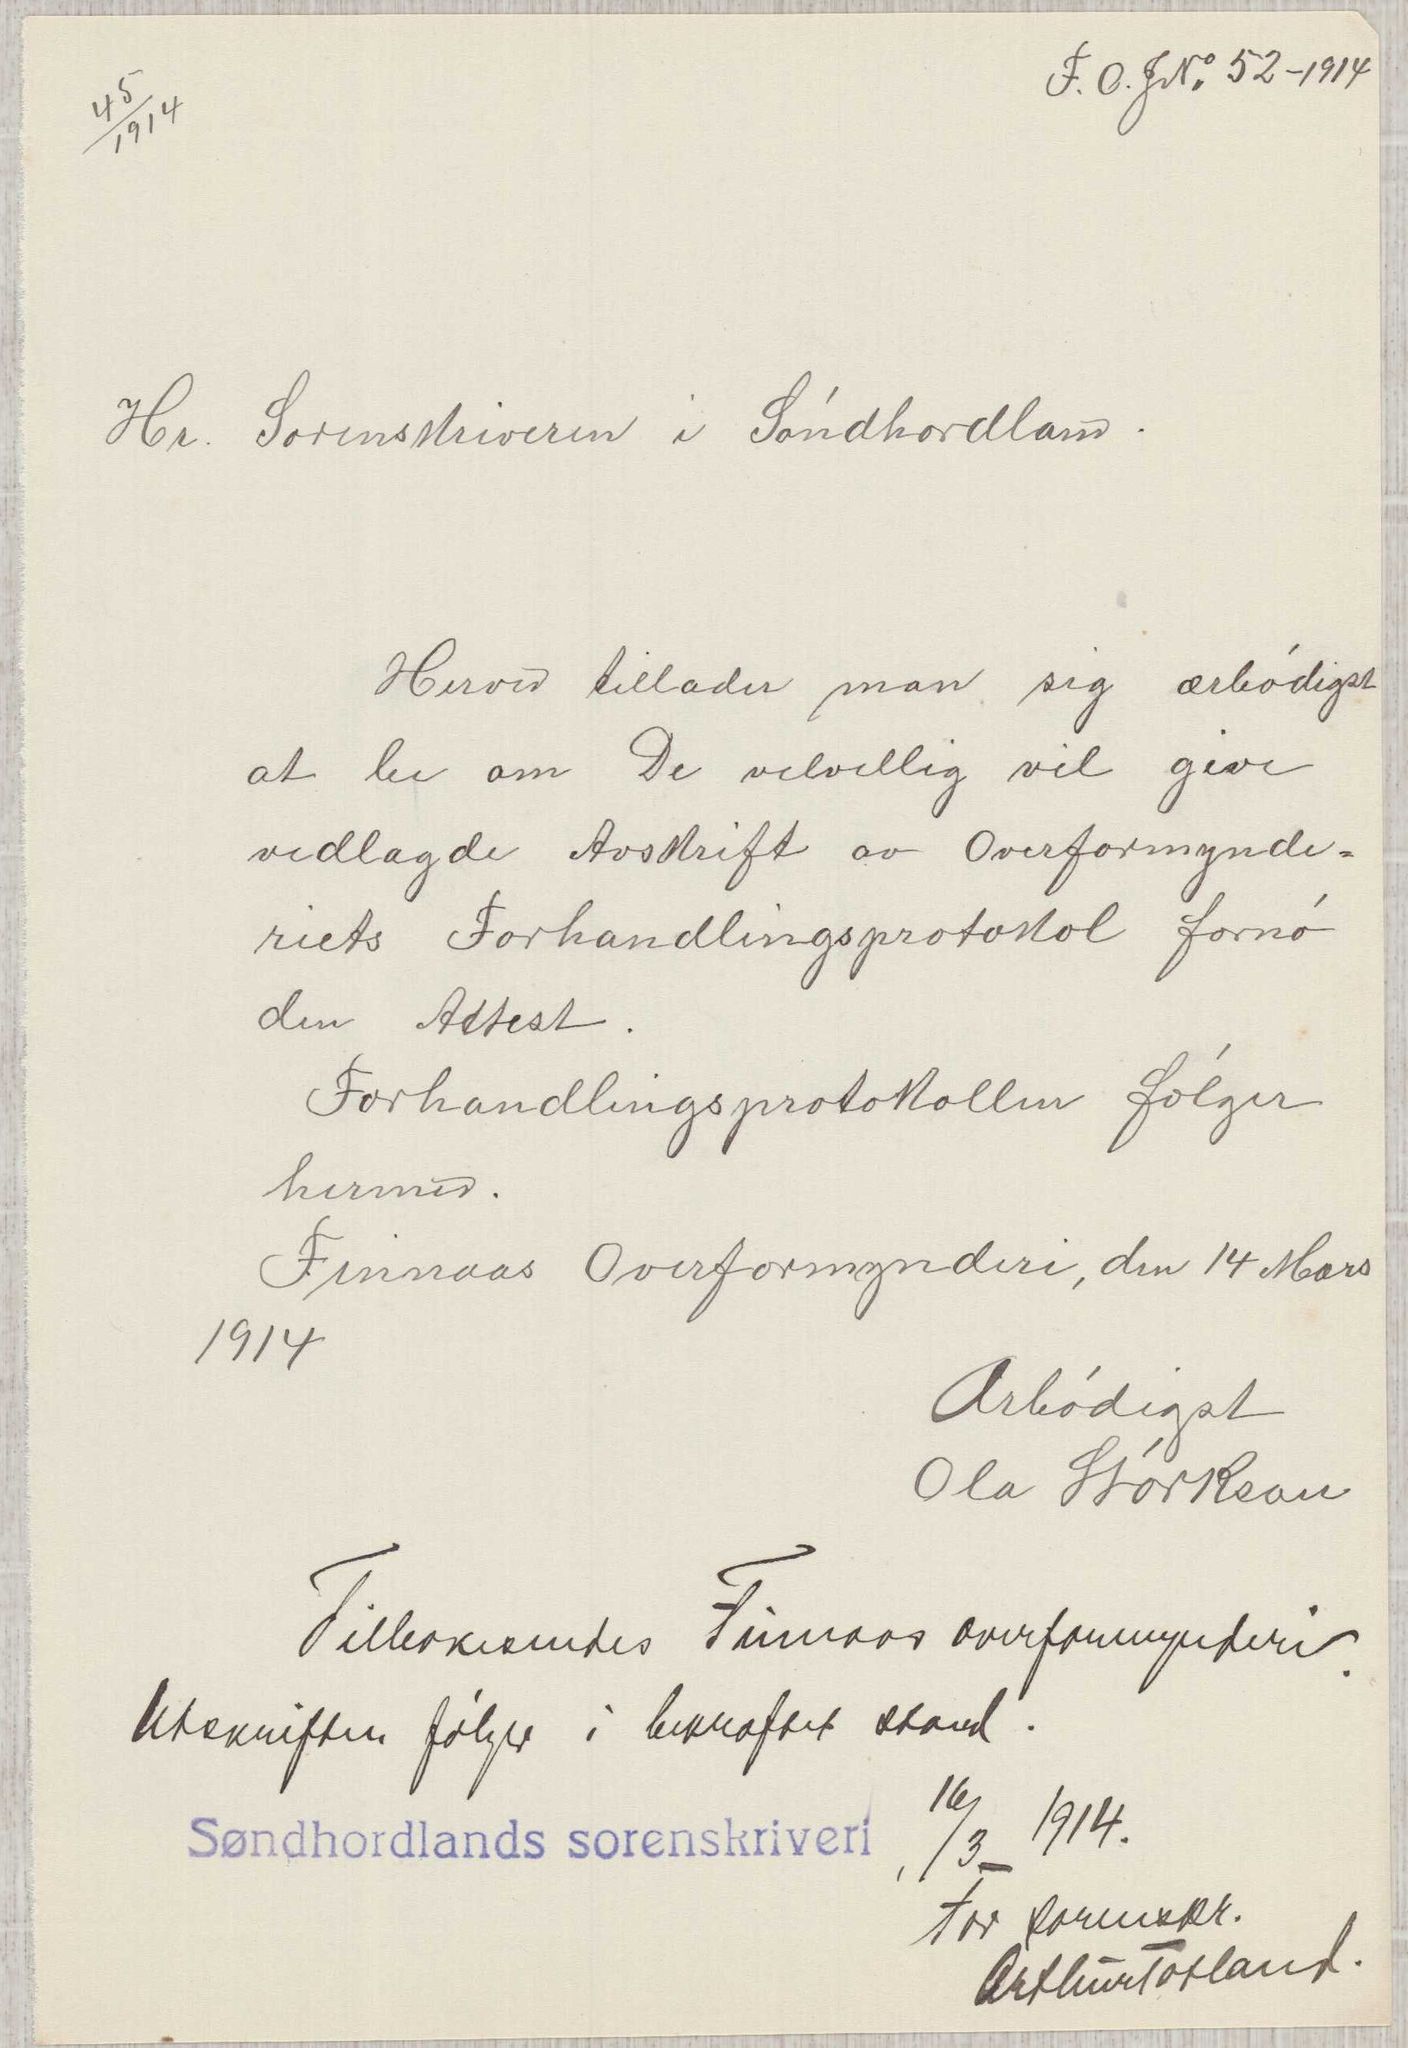 45/1914
F. O. J No. 52-1914
Hr. Sorenskriveren i Søndhordland.
Herved tillader man sig ærbødigst
at be om De velvillig vil give
vedlagde Avskrift av Overformynde=
riets Forhandlingsprotokol fornø
den Attest.
Forhandlingsprotokollen følger
hermed.
Finnaas Overformynderi, den 14 Mars
1914
Ærbødigst
Ola Størkson
Tilbakesendes Finnaas overformynderi.
Utskriften følger i bekræftet stand.
Søndhordlands sorenskriveri, 16/3 1914.
For sorenskr.
Arthur Totland.